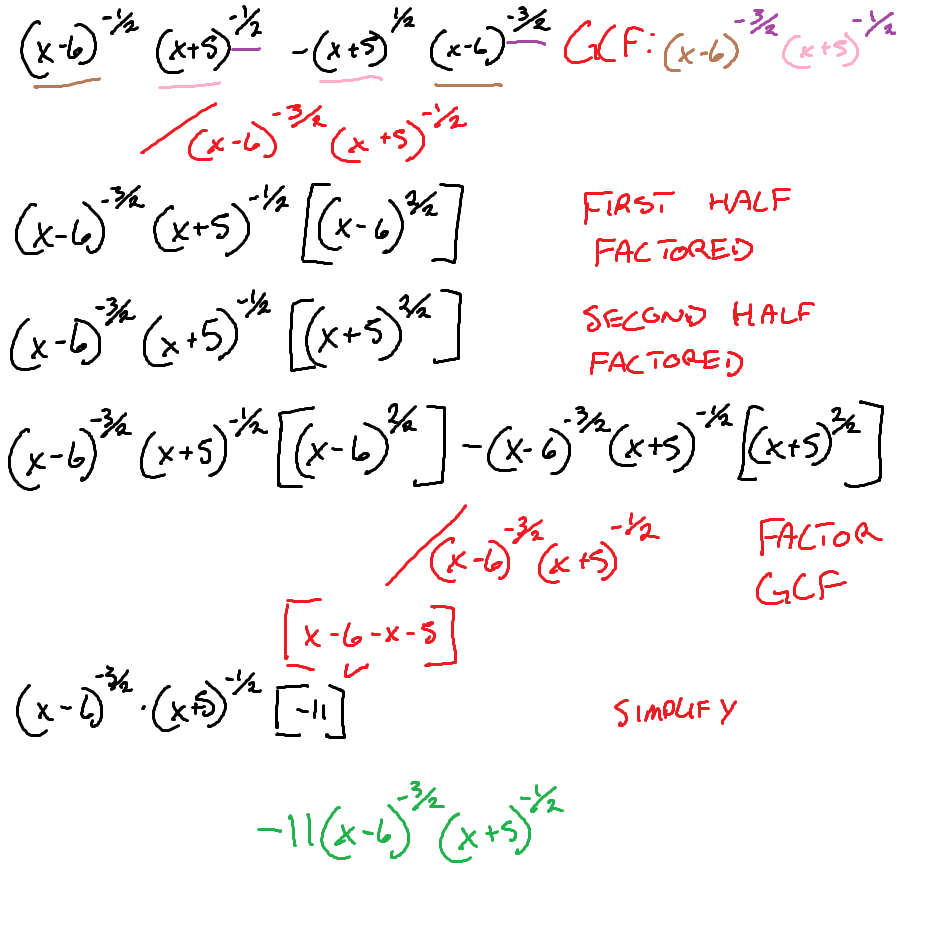 (x-6)^-1/2 (x+5)^-1/2 -(x+5)^1/2 (x-6)^-3/2 GCF: (x-6)^-3/2 (x+5)^-1/2
/(x-6)^-3/2 (x+5)^-1/2
(x-6)^-3/2 (x+5)^-1/2 [(x-6)^2/2] FIRST HALF
FACTORED
(x-6)^-3/2 (x+5)^-1/2 [(x+5)^2/2] SECOND HALF
FACTORED
(x-6)^-3/2 (x+5)^-1/2 [(x-6)^2/2] -(x-6)^-3/2 (x+5)^-1/2 [(x+5)^2/2]
/(x-6)^-3/2 (x+5)^-1/2 FACTOR
GCF
[x-6-x-5]
(x-6)^-3/2 · (x+5)^-1/2 [-11] SIMPLIFY
-11(x-6)^-3/2 (x+5)^-1/2